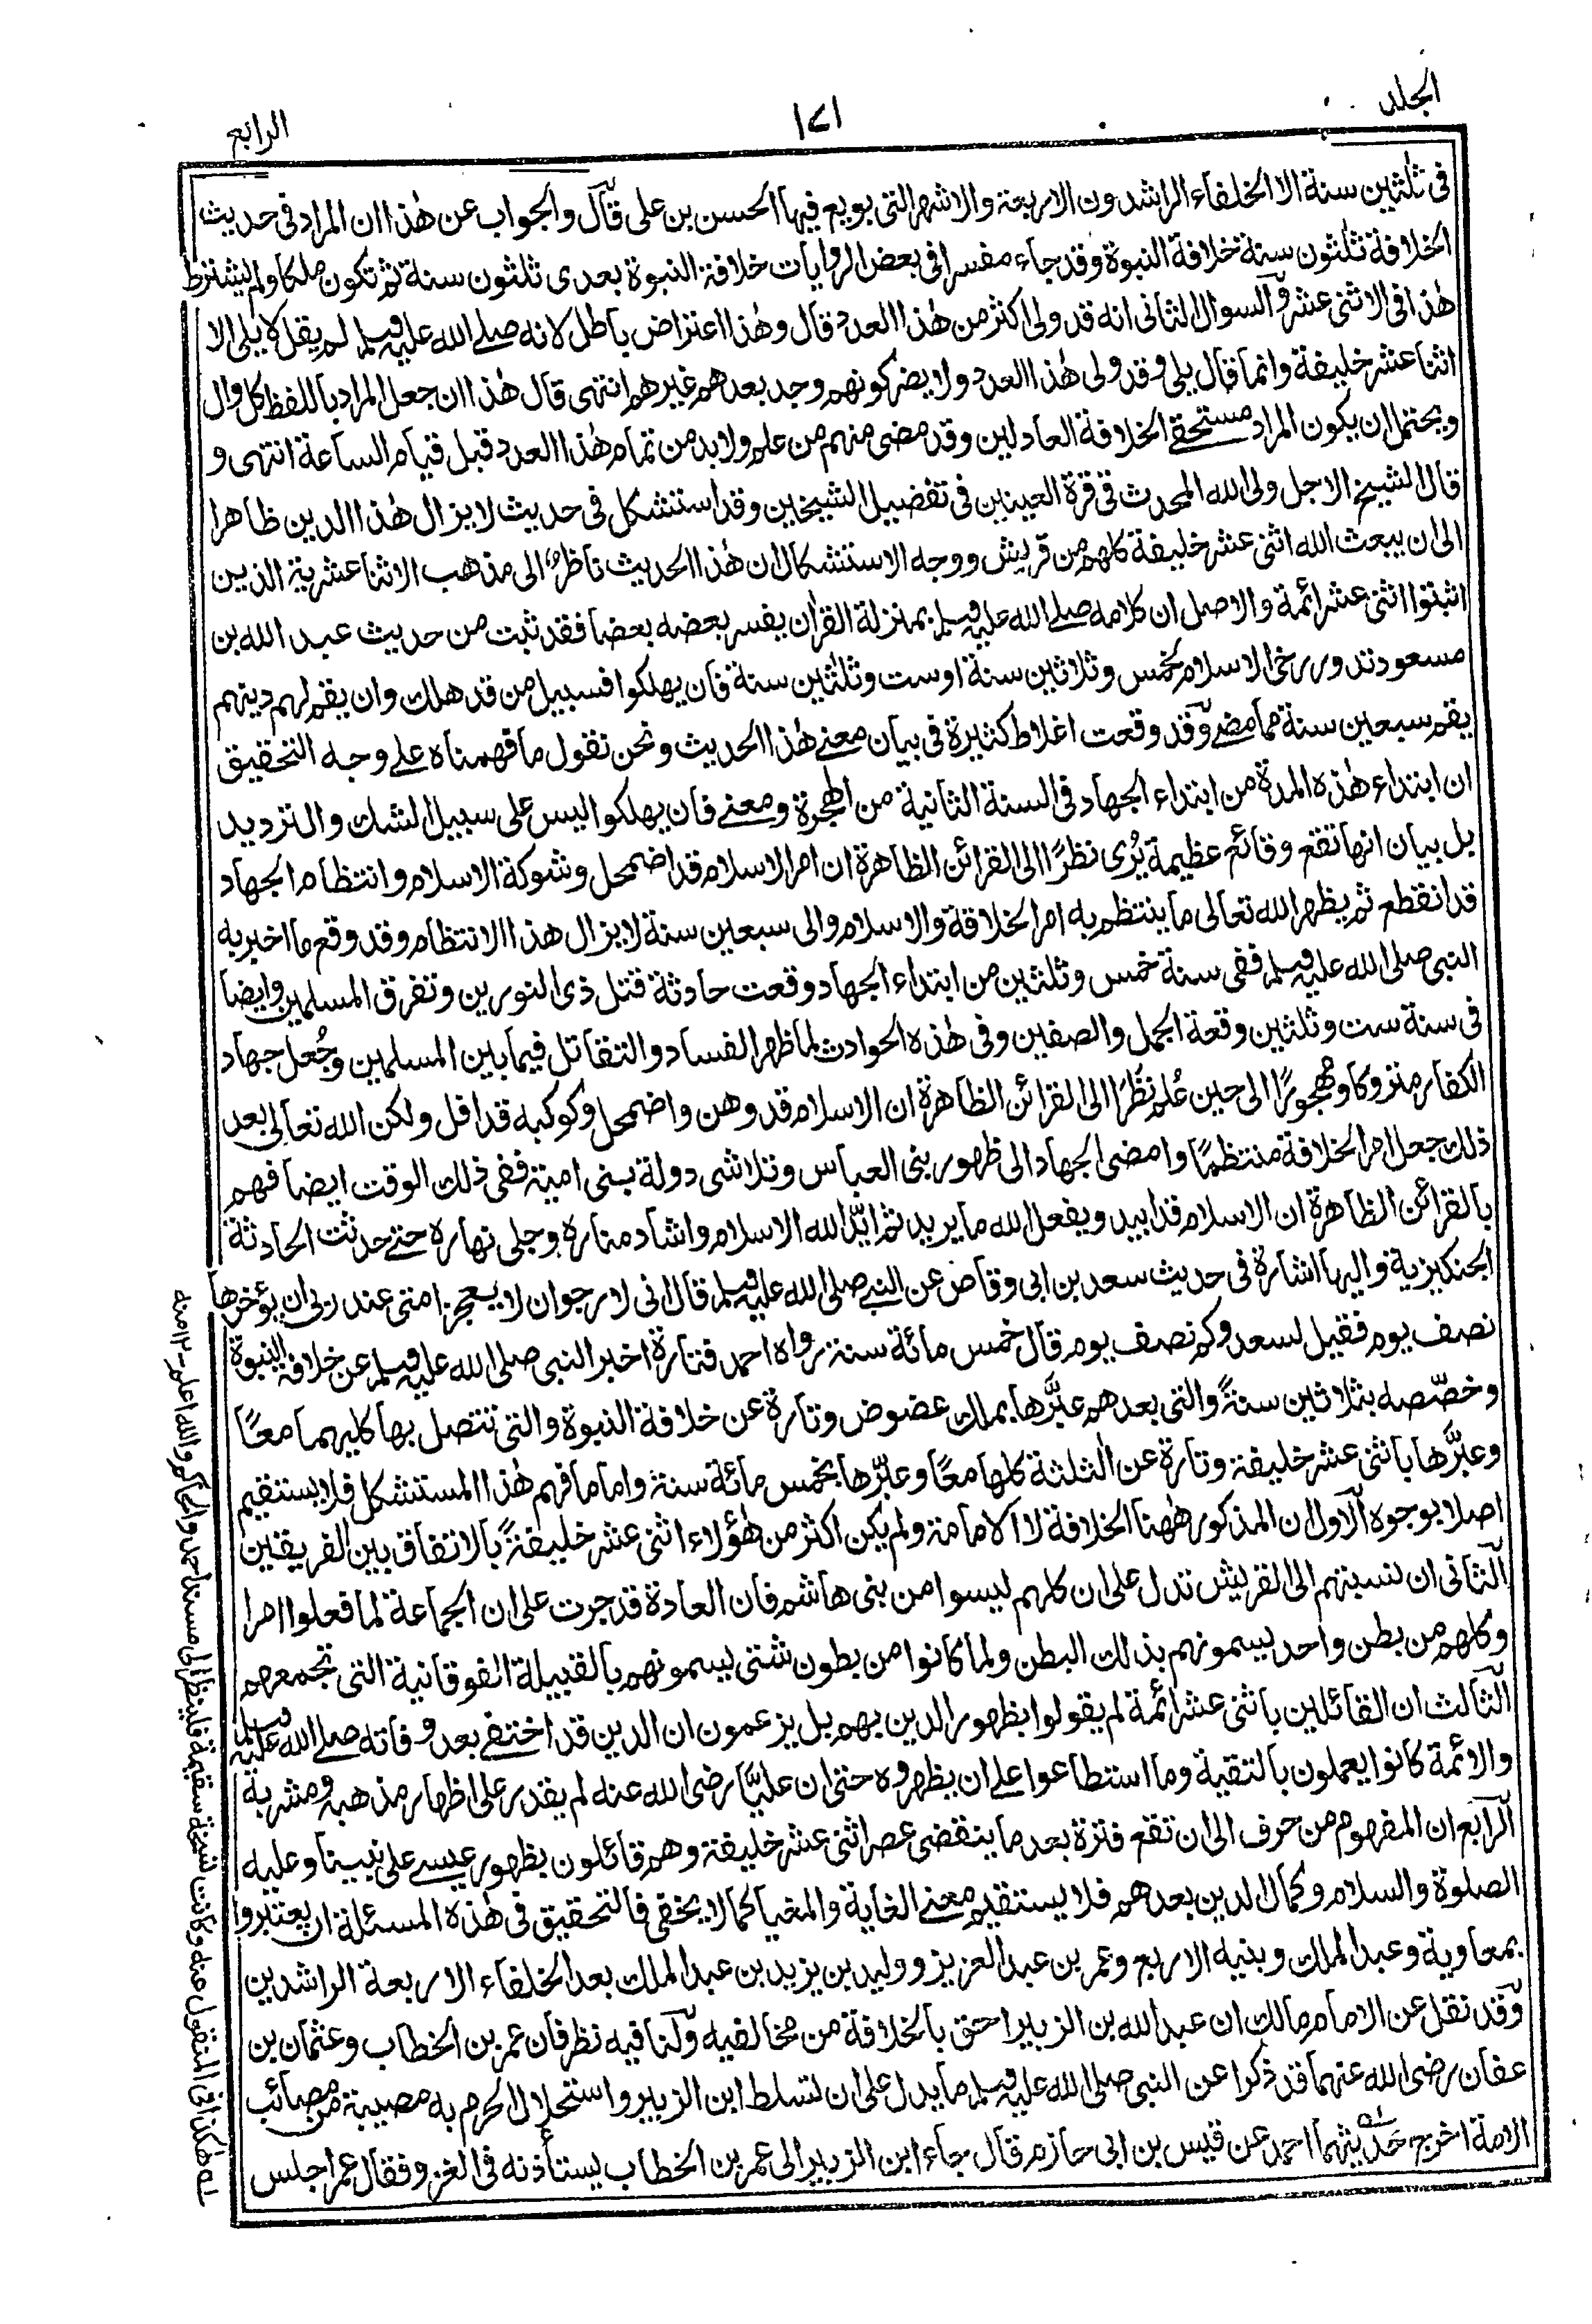 الجلد
١٧١
الرابع
فى ثلثين سنة الا الخلفاء الراشدون الاربعة والاشهر التى بويع فيها الحسن بن على قال والجواب عن هذا ان المراد فى حديث
الخلافة ثلثون سنة خلافة النبوة وقد جاء مفسرا فى بعض الروايات خلافة النبوة بعدى ثلثون سنة ثم تكون ملكا ولم يشترط
هذا فى الاثنى عشر و السوال الثانى انه قد ولى اكثر من هذا العدد قال وهذا اعتراض باطل لانه صلے الله عليه وسلم لم يقل لا يلى الا
اثنا عشر خليفة وانما قال يلى وقد ولى هذا العدد ولا يضر كونهم وجد بعدهم غيرهم انتهى قال هذا ان جعل المراد باللفظ كل وال
ويحتمل ان يكون المراد مستحقے الخلافة العادلين وقد مضى منهم من علم ولا بد من تمام هذا العدد قبل قيام الساعة انتهى و
قال الشيخ الاجل ولى الله المحدث فى قرة العينين فى تفضيل الشيخين وقد استشكل فى حديث لا يزال هذا الدين ظاهرا
الى ان يبعث الله اثنى عشر خليفة كلهم من قريش ووجه الاستشكال ان هذا الحديث ناظر الى مذهب الاثنا عشرية الذين
اثبتوا اثنى عشر ائمة والاصل ان كلامه صلے الله عليه وسلم بمنزلة القران يفسر بعضه بعضا فقد ثبت من حديث عبد الله بن
مسعود تدور رحى الاسلام لخمس وثلاثين سنة او ست وثلثين سنة فان يهلكوا فسبيل من قد هلك وان يقم لهم دينهم
يقم سبعين سنة مما مضے وقد وقعت اغلاط كثيرة فى بيان معنے هذا الحديث ونحن نقول ما فهمناه علے وجه التحقيق
ان ابتداء هذه المدة من ابتداء الجهاد فى السنة الثانية من الهجرة ومعنے فان يهلكوا ليس على سبيل الشك والترديد
بل بيان انها تقع وقائع عظيمة يُرى نظرًا الى القرائن الظاهرة ان امر الاسلام قد اضمحل وشوكة الاسلام وانتظام الجهاد
قد انقطع ثم يظهر الله تعالى ما ينتظم به امر الخلافة والاسلام والى سبعين سنة لا يزال هذا الانتظام وقد وقع ما اخبر به
النبى صلى الله عليه وسلم ففى سنة خمس وثلثين من ابتداء الجهاد وقعت حادثة قتل ذى النورين وتفرق المسلمين وايضا
فى سنة ست وثلثين وقعة الجمل والصفين وفى هذه الحوادث لما ظهر الفساد والتقاتل فيما بين المسلمين وجُعل جهاد
الكفار متروكا ومهجورًا الى حين عُلم نظرًا الى القرائن الظاهرة ان الاسلام قد وهن واضمحل وكوكبه قد افل ولكن الله تعالى بعد
ذلك جعل امر الخلافة منتظمًا وامضى الجهاد الى ظهور بنى العباس وتلاشى دولة بنى امية ففى ذلك الوقت ايضا فهم
بالقرائن الظاهرة ان الاسلام قد ابيد ويفعل الله ما يريد ثم ايّد الله الاسلام واشاد مناره وجلى نهاره حتے حدثت الحادثة
الجنكيزية واليها اشارة فى حديث سعد بن ابى وقاص عن النبى صلى الله عليه وسلم قال انى لارجو ان لا يعجز امتى عند ربى ان يؤخرها
نصف يوم فقيل لسعد وكم نصف يوم قال خمس مائة سنة رواه احمد فتارة اخبر النبى صلى الله عليه وسلم عن خلافة النبوة
وخصّصه بثلاثين سنةً والتى بعدهم عبَّرها بملك عضوض وتارة عن خلافة النبوة والتى تتصل بها كليهما معًا
وعبَّرها باثنى عشر خليفة وتارة عن الثلثة كلها معًا وعبّرها بخمس مائة سنة واما ما فهم هذا المستشكل فلا يستقيم
اصلا بوجوه الاول ان المذكور ههنا الخلافة لا الامامة ولم يكن اكثر من هؤلاء اثنى عشر خليفةً بالاتفاق بين الفريقين
الثانى ان نسبتهم الى القريش تدل على ان كلهم ليسوا من بنى هاشم فان العادة قد جرت على ان الجماعة لما فعلوا امرا
وكلهم من بطن واحد يسمونهم بذلك البطن ولما كانوا من بطون شتى يسمونهم بالقبيلة الفوقانية التى تجمعهم
الثالث ان القائلين باثنى عشر ائمة لم يقولوا بظهور الدين بهم بل يزعمون ان الدين قد اختفے بعد وفاته صلے الله عليه وسلم
والائمة كانوا يعملون بالتقية وما استطاعوا علے ان يظهروه حتى ان عليًّا رضى الله عنه لم يقدر على اظهار مذهبه ومشربه
الرابع ان المفهوم من حرف الى ان تقع فترة بعد ما ينقضى عصر اثنى عشر خليفة وهم قائلون بظهور عيسے على نبينا وعليه
الصلوة والسلام وكمال الدين بعدهم فلا يستقيم معنے الغاية والمغيا كما لا يخفى فالتحقيق فى هذه المسئلة ان يعتبروا
بمعاوية وعبد الملك وبنيه الاربع وعمر بن عبد العزيز ووليد بن يزيد بن عبد الملك بعد الخلفاء الاربعة الراشدين
وقد نقل عن الامام مالك ان عبد الله بن الزبير احق بالخلافة من مخالفيه ولنا فيه نظر فان عمر بن الخطاب وعثمان بن
عفان رضى الله عنهما قد ذكرا عن النبى صلى الله عليه وسلم ما يدل على ان تسلط ابن الزبير واستحلال الحرم به مصيبة من مصائب
الامة اخرج حديثهما احمد عن قيس بن ابى حازم قال جاء ابن الزبير الى عمر بن الخطاب يستأذنه فى الغزو فقال عمر اجلس
له هكذا فى المنقول عنه وكانت نسخة سقيمة فلينظر الى مسند احمد والحاكم والله اعلم ١٢ منه